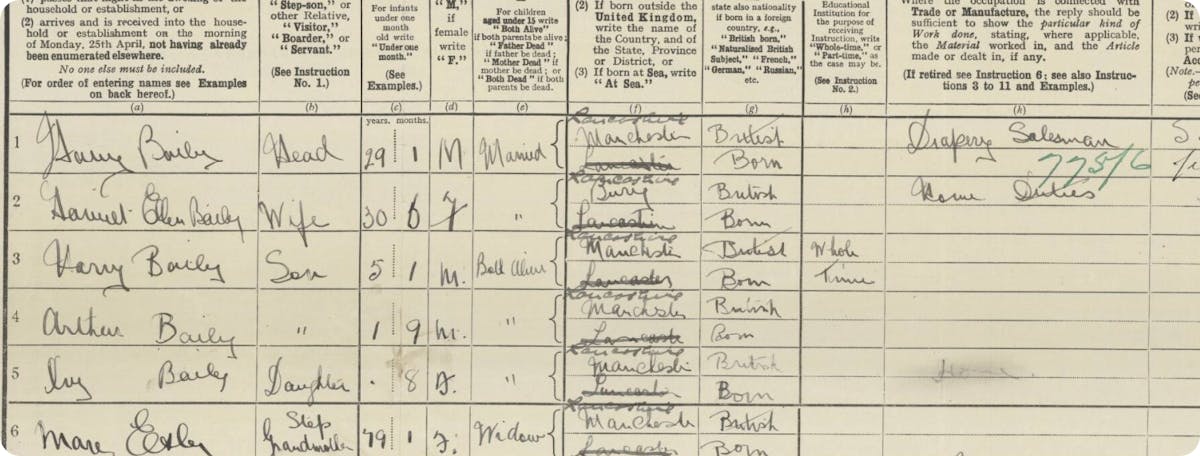 household or establishment, or
(2) arrives and is received into the house-
hold or establishment on the morning
of Monday, 25th April, not having already
been enumerated elsewhere.
No one else must be included.
(For order of entering names see Examples
on back hereof.)
(a)
"Step-son," or
other Relative,
"Visitor,"
"Boarder," or
"Servant."
(See Instruction
No. 1.)
(b)
For infants
under one
month
old write
"Under one
month."
(See
Examples.)
(c)
"M,"
if
female
write
"F."
(d)
For children
aged under 15 write
"Both Alive"
if both parents be alive;
"Father Dead"
if father be dead;
"Mother Dead" if
mother be dead; or
"Both Dead" if both
parents be dead.
(e)
(2) If born outside the
United Kingdom,
write the name of
the Country, and of
the State, Province
or District, or
(3) If born at Sea, write
"At Sea."
(f)
state also nationality
if born in a foreign
country, e.g.,
"British born,"
"Naturalised British
Subject," "French,"
"German," "Russian,"
etc.
(g)
Educational
Institution for the
purpose of
receiving
Instruction, write
"Whole-time," or
"Part-time," as
the case may be.
(See Instruction
No. 2.)
(h)
Where the occupation is connected with
Trade or Manufacture, the reply should be
sufficient to show the particular kind of
Work done, stating, where applicable,
the Material worked in, and the Article
made or dealt in, if any.
(If retired see Instruction 6; see also Instruc-
tions 3 to 11 and Examples.)
(k)
years. months.
1 Harry Baily Head 29 1 M Married Lancashire Manchester Lancaster British Born Drapery Salesman
775/6
2 Harriet Ellen Baily Wife 30 6 F " Lancashire Bury Lancaster British Born Home Duties
3 Harry Baily Son 5 1 M. Both Alive Lancashire Manchester Lancaster British Born Whole Time
4 Arthur Baily " 1 9 M. " Lancashire Manchester Lancaster British Born
5 Ivy Baily Daughter . 8 F. " Lancashire Manchester Lancaster British Born Home.
6 Mary Step Grandmother 79 1 F. Widow Lancashire Manchester Lancaster British Born